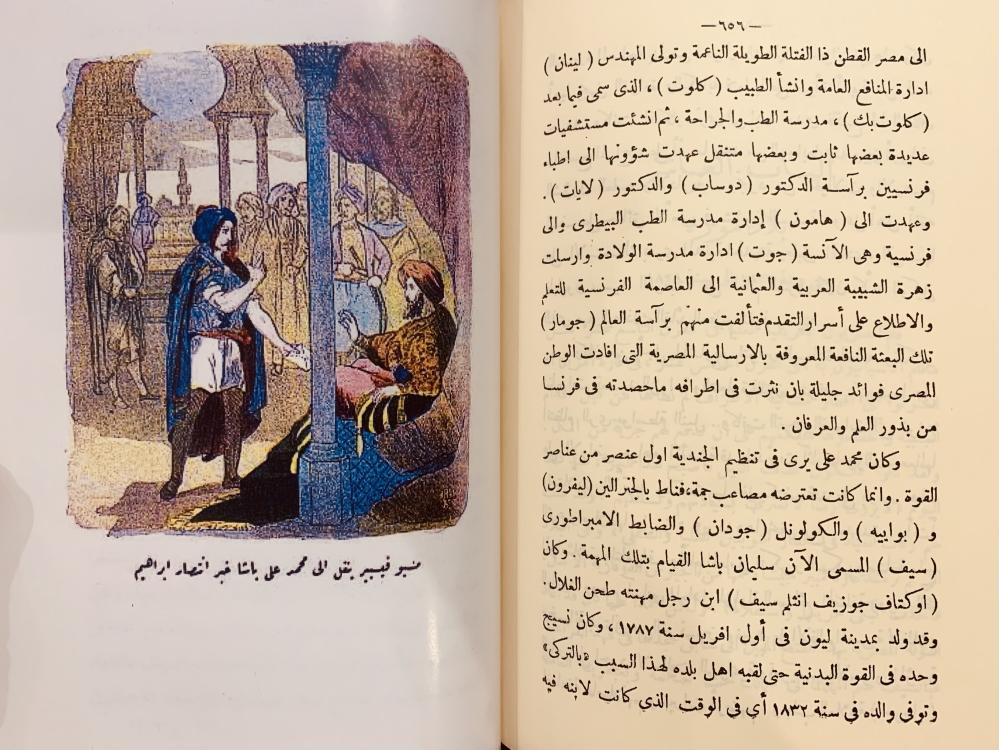 —٦٥٦—
الى مصر القطن ذا الفتلة الطويلة الناعمة وتولى المهندس ( لينان )
ادارة المنافع العامة وانشأ الطبيب ( كلوت ) ، الذى سمى فيما بعد
( كلوت بك ) ، مدرسة الطب والجراحة ، ثم انشئت مستشفيات
عديدة بعضها ثابت وبعضها متنقل عهدت شؤونها الى اطباء
فرنسيين برآسة الدكتور ( دوساب ) والدكتور ( لايات ) .
وعهدت الى ( هامون ) إدارة مدرسة الطب البيطرى والى
فرنسية وهى الآنسة ( جوت ) ادارة مدرسة الولادة وارسلت
زهرة الشبيبة العربية والعثمانية الى العاصمة الفرنسية للتعلم
والاطلاع على أسرار التقدم فتألفت منهم برآسة العالم ( جومار )
تلك البعثة النافعة المعروفة بالارسالية المصرية التى افادت الوطن
المصرى فوائد جليلة بان نثرت فى اطرافه ماحصدته فى فرنسا
من بذور العلم والعرفان .
وكان محمد على يرى فى تنظيم الجندية اول عنصر من عناصر
القوة . وانما كانت تعترضه مصاعب جمة ، فناط بالجنرالين ( ليفرون )
و ( بواييه ) والكولونل ( جودان ) والضابط الامبراطورى
( سيف ) المسمى الآن سليمان باشا القيام بتلك المهمة . وكان
( اوكتاف جوزيف انثلم سيف ) ابن رجل مهنته طحن الغلال .
وقد ولد بمدينة ليون فى أول افريل سنة ١٧٨٧ ، وكان نسيج
وحده فى القوة البدنية حتى لقبه اهل بلده لهذا السبب «بالتركى»
وتوفى والده فى سنة ١٨٣٢ أي في الوقت الذي كانت لابنه فيه
منسيو فيسيير ينقل الى محمد على باشا خبر انتصار ابراهيم